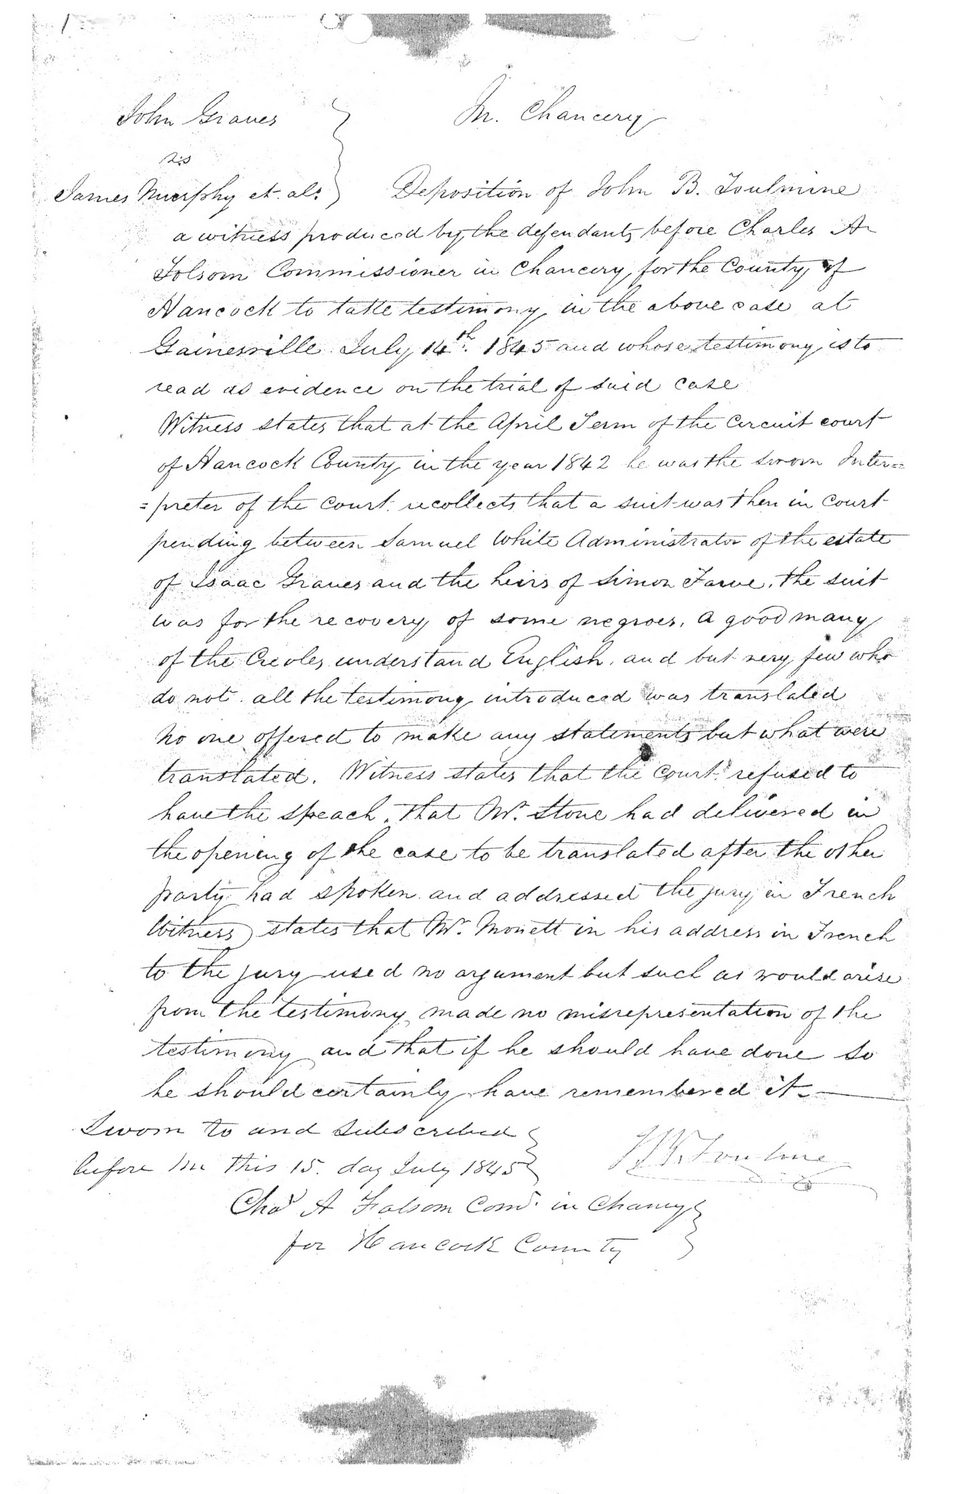 John Graves
vs
James Murphy et. als.
In. Chancery
Deposition of John B. Toulmine
a witness produced by the defendants before Charles A
Folsom Commissioner in Chancery for the County of
Hancock to take testimony in the above case at
Gainesville July 14th. 1845 and whose testimony is to
read as evidence on the trial of said case
Witness states that at the April Term of the Circuit court
of Hancock County in the year 1842 he was the sworn Inter=
=preter of the court. recollects that a suit was then in court
pending between Samuel White Administrator of the estate
of Isaac Graves and the heirs of Simon Favre. the suit
was for the recovery of some negroes. A good many
of the Creoles understand English. and but very few who
do not. all the testimony introduced was translated
No one offered to make any statements but what were
translated. Witness states that the court refused to
have the speach. that Mr. Stone had delivered in
the opening of the case to be translated after the other
party had spoken and addressed the jury in French
Witness states that Mr. Monett in his address in French
to the jury used no argument but such as would arise
from the testimony made no misrepresentation of the
testimony and that if he should have done so
he should certainly have remembered it.
Sworn to and Subscribed
before me this 15. day July 1845
Toulmine
Chas A Folsom Comr. in Chancy
for Hancock County